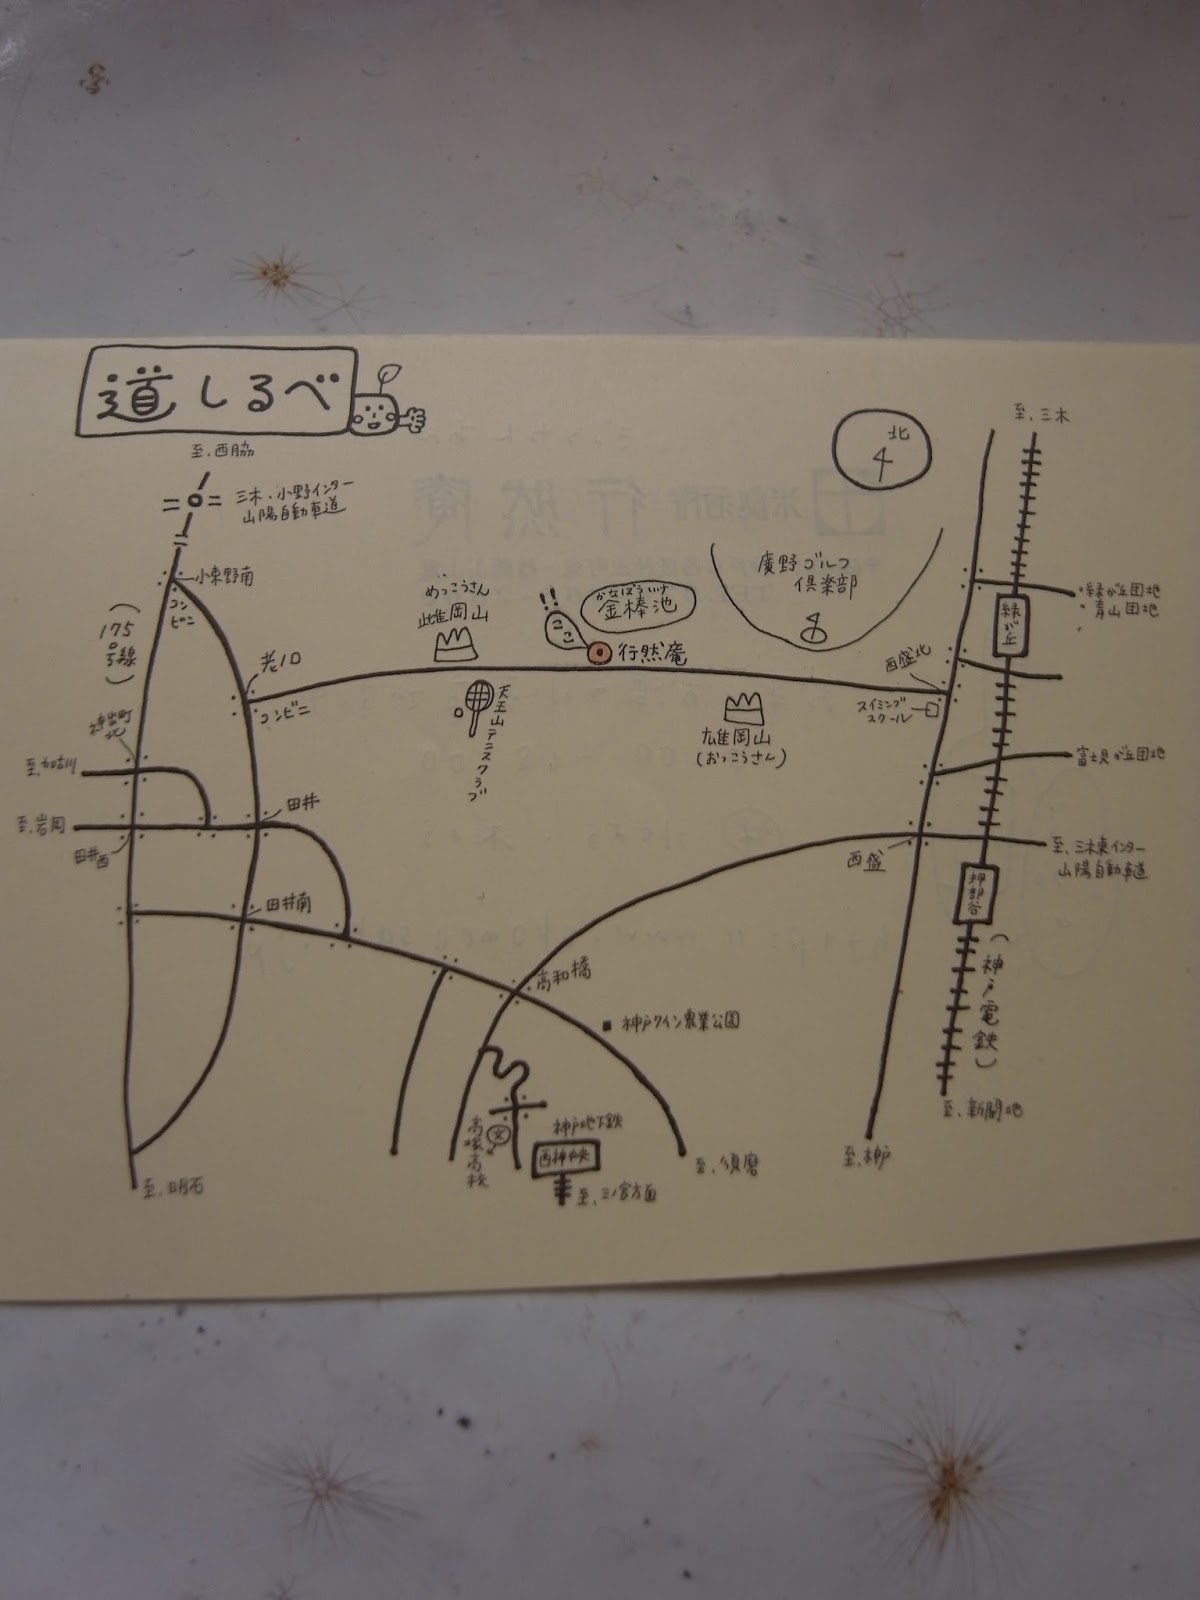 道しるべ
至.三木
北
至.西脇
三木.小野インター
山陽自動車道
小東野南
コンビニ
(175号線)
老ノ口
コンビニ
神出町北
至.加古川
至.岩岡
田井西
田井
田井南
めっこうさん
雌岡山
天王山テニスクラブ
ここ
かなぼういけ
金棒池
行然庵
廣野ゴルフ
倶楽部
雄岡山
(おっこうさん)
西盛北
スイミング
スクール
緑が丘
緑が丘団地
青山団地
富士見が丘団地
西盛
至.三木東インター
山陽自動車道
押部谷
(神戸電鉄)
至.新開地
至.神戸
高和橋
神戸ワイン農業公園
高塚高校
文
神戸地下鉄
西神中央
至.三ノ宮方面
至.須磨
至.明石